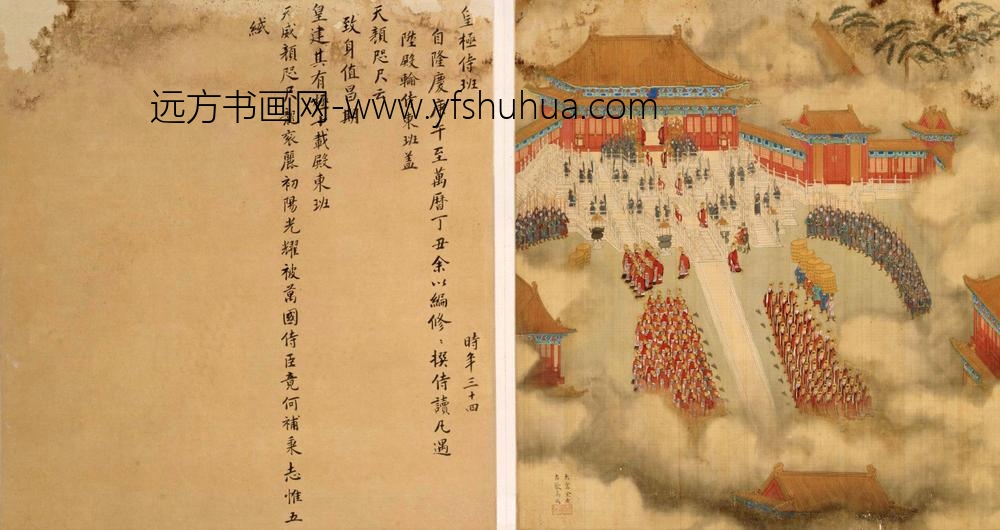 皇極侍班
時年三十四
自隆慶午至萬曆丁丑余以編修〻撰侍讀凡遇
陞殿輪侍東班蓋
天顏咫尺云
致身值昌期
皇建其有載殿東班
天威顏咫尺袞麗初陽光耀被萬國侍臣竟何補秉志惟五
緎
远方书画网-www.yfshuhua.com